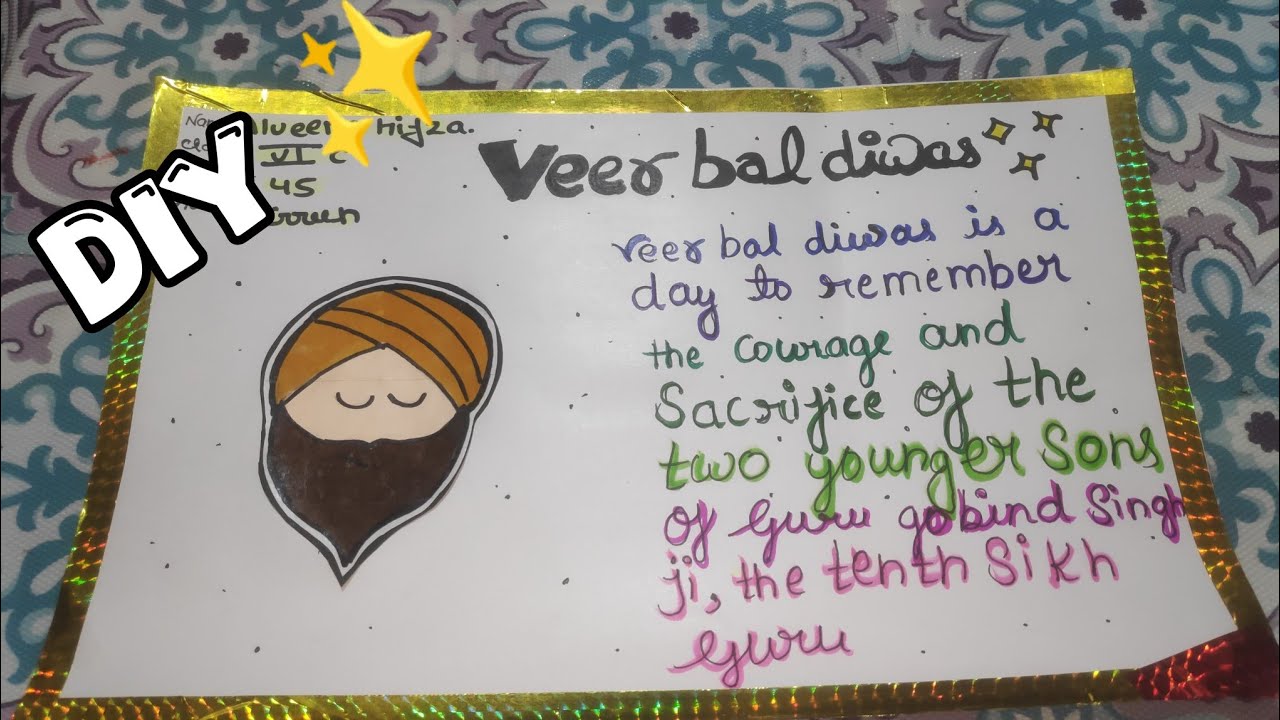 DIY
Hifza.
VI C
45
Veer bal diwas
veer bal diwas is a
day to remember
the courage and
Sacrifice of the
two younger sons
of Guru gobind Singh
ji, the tenth Sikh
Guru